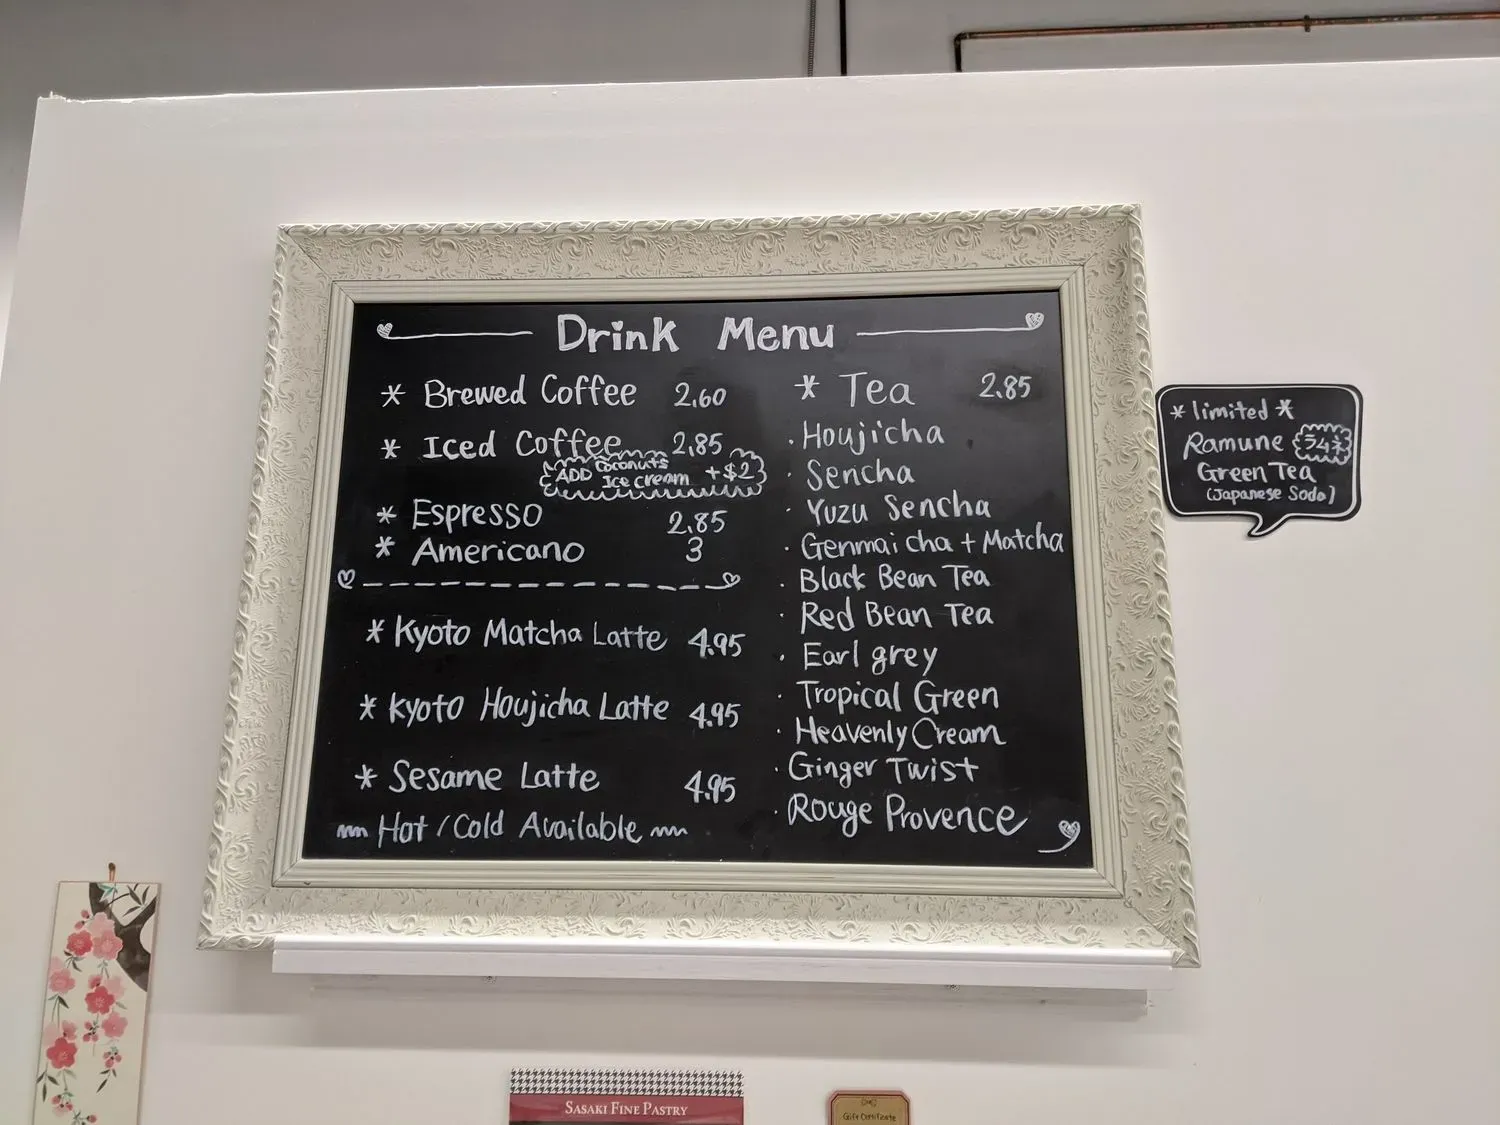 Drink Menu
* Brewed Coffee 2.60
* Iced Coffee 2.85
ADD Coconuts Ice cream +$2
* Espresso 2.85
* Americano 3
* Kyoto Matcha Latte 4.95
* Kyoto Houjicha Latte 4.95
* Sesame Latte 4.95
Hot / Cold Available
* Tea 2.85
· Houjicha
· Sencha
· Yuzu Sencha
· Genmai cha + Matcha
· Black Bean Tea
· Red Bean Tea
· Earl grey
· Tropical Green
· Heavenly Cream
· Ginger Twist
· Rouge Provence
* limited *
Ramune ラムネ
Green Tea
(Japanese Soda)
SASAKI FINE PASTRY
Gift Certificate